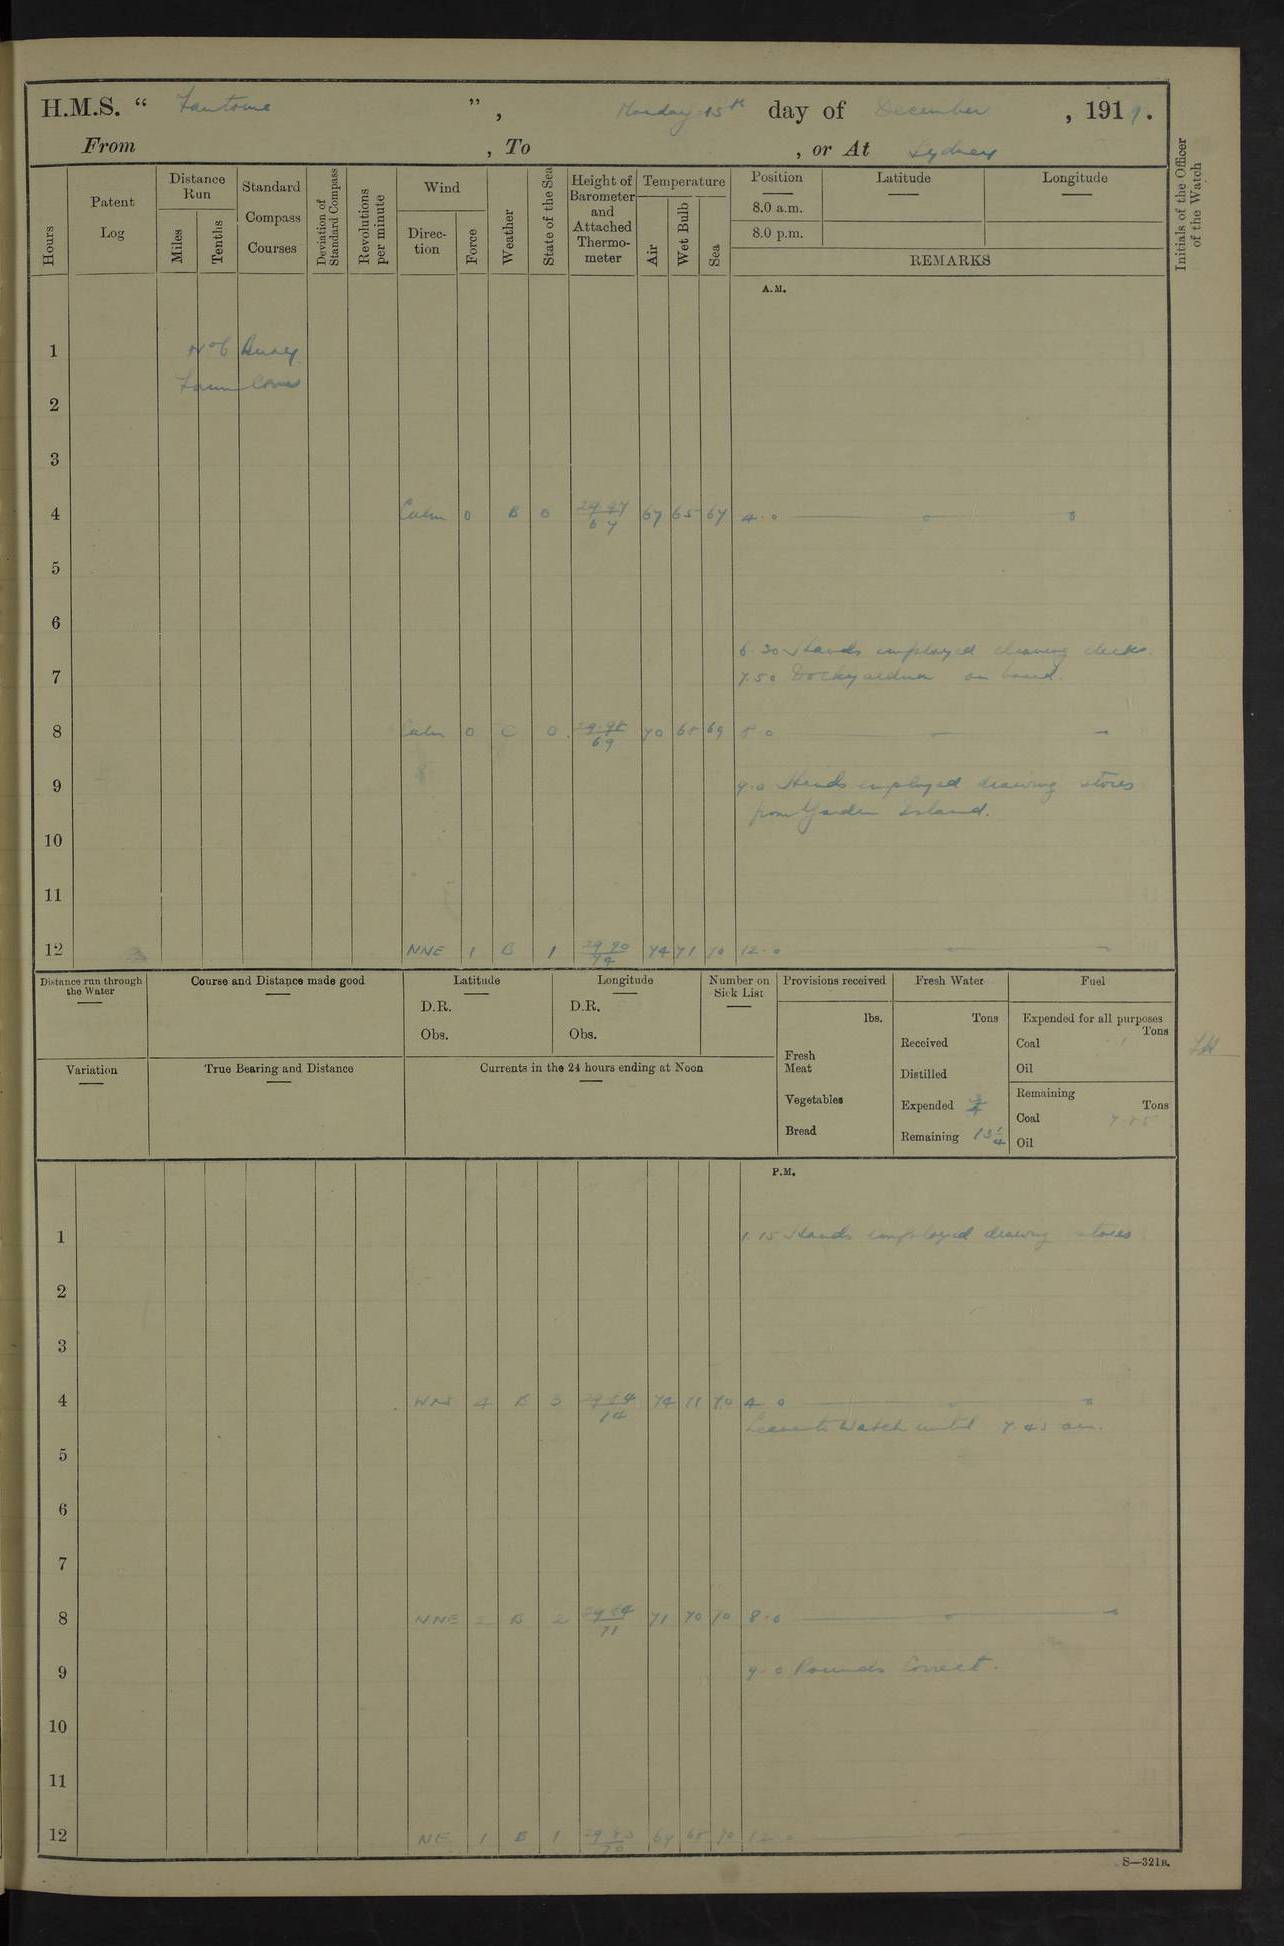 H.M.S. “ Fantome ”, Monday 15th day of December, 1919.
From , To , or At Sydney
Hours
Patent Log
Distance Run
Miles
Tenths
Standard Compass Courses
Deviation of Standard Compass
Revolutions per minute
Wind
Direction
Force
Weather
State of the Sea
Height of Barometer and Attached Thermometer
Temperature
Air
Wet Bulb
Sea
Position
8.0 a.m.
8.0 p.m.
Latitude
Longitude
REMARKS
Initials of the Officer of the Watch
A.M.
1 No 6 Buoy
Farm Cove
2
3
4 Calm 0 B 0 29.97/67 67 65 67 4.0
5
6
6.30 Hands employed cleaning decks.
7 7.50 Dockyardmen on board.
8 Calm 0 C 0 29.98/69 70 68 69 8.0
9 9.0 Hands employed drawing stores
from Garden Island.
10
11
12 NNE 1 B 1 29.90/74 74 71 70 12.0
Distance run through the Water
Course and Distance made good
Latitude
D.R.
Obs.
Longitude
D.R.
Obs.
Number on Sick List
Provisions received
lbs.
Fresh Meat
Vegetables
Bread
Fresh Water
Tons
Received
Distilled
Expended 3/4
Remaining 13 1/4
Fuel
Expended for all purposes
Tons
Coal
Oil
Remaining
Tons
Coal
Oil
Variation
True Bearing and Distance
Currents in the 24 hours ending at Noon
P.M.
1 1.15 Hands employed drawing stores
2
3
4 4 B 3 29.84/74 74 71 70 4.0
Leave to Watch until 7.45 am.
5
6
7
8 NNE 2 B 2 29.84/71 71 70 70 8.0
9 9.0 Rounds Correct.
10
11
12 NE 1 B 1 29.83/70 69 68 70 12.0
S—321B.